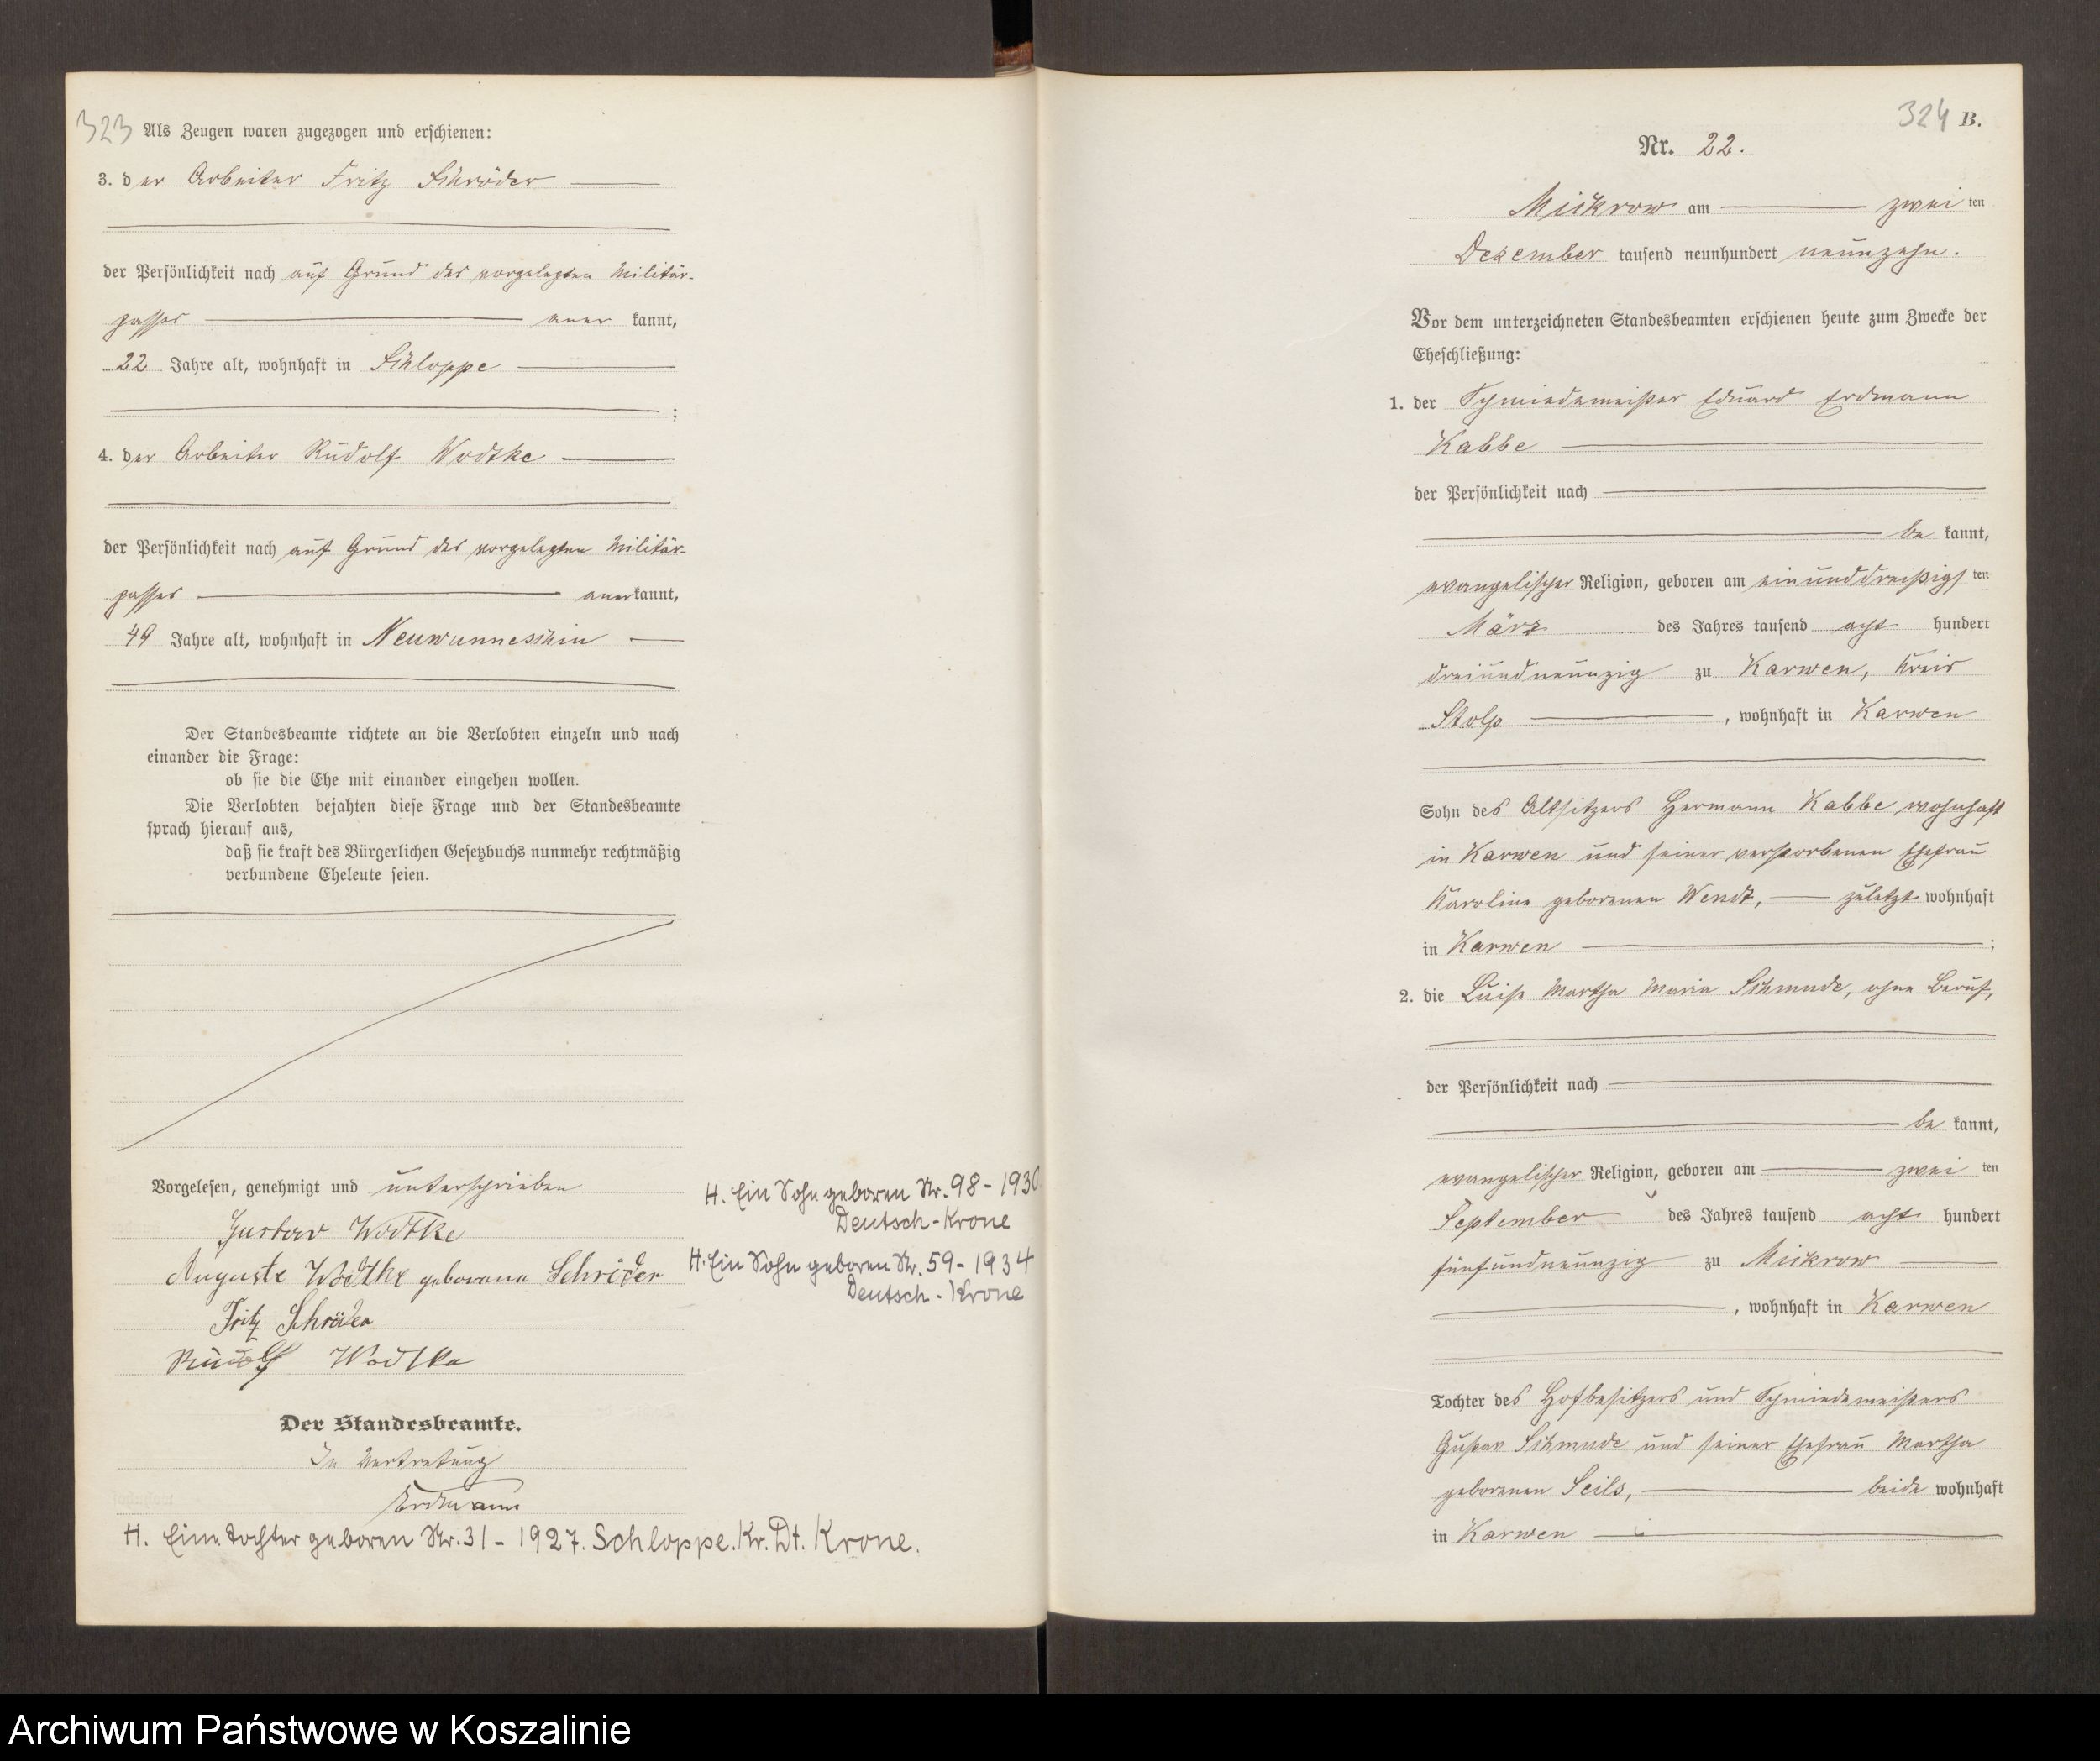 323 Als Zeugen waren zugezogen und erschienen:
3. der Arbeiter Fritz Schröder
der Persönlichkeit nach auf Grund des vorgelegten Militär-
passes aner kannt,
22 Jahre alt, wohnhaft in Schloppe
;
4. der Arbeiter Rudolf Wodtke
der Persönlichkeit nach auf Grund des vorgelegten Militär-
passes anerkannt,
49 Jahre alt, wohnhaft in Neuwunneschin
Der Standesbeamte richtete an die Verlobten einzeln und nach
einander die Frage:
ob sie die Ehe mit einander eingehen wollen.
Die Verlobten bejahten diese Frage und der Standesbeamte
sprach hierauf aus,
daß sie kraft des Bürgerlichen Gesetzbuchs nunmehr rechtmäßig
verbundene Eheleute seien.
Vorgelesen, genehmigt und unterschrieben
Gustav Wodtke
Auguste Wodtke geborene Schröder
Fritz Schröder
Rudolf Wodtke
H. Ein Sohn geboren Nr. 98 - 1930
Deutsch-Krone
H. Ein Sohn geboren Nr. 59 - 1934
Deutsch-Krone
Der Standesbeamte.
In Vertretung
Erdmann
H. Eine Tochter geboren Nr. 31 - 1927. Schloppe. Kr. Dt. Krone.
324 B.
Nr. 22.
Mickrow am zwei ten
Dezember tausend neunhundert neunzehn.
Vor dem unterzeichneten Standesbeamten erschienen heute zum Zwecke der
Eheschließung:
1. der Schmiedemeister Eduard Erdmann
Kabbe
der Persönlichkeit nach
be kannt,
evangelischer Religion, geboren am einunddreißigs ten
März des Jahres tausend acht hundert
dreiundneunzig zu Karwen, Kreis
Stolp , wohnhaft in Karwen
Sohn des Altsitzers Hermann Kabbe wohnhaft
in Karwen und seiner verstorbenen Ehefrau
Karoline geborenen Wendt, zuletzt wohnhaft
in Karwen ;
2. die Luise Martha Maria Schmude, ohne Beruf,
der Persönlichkeit nach
be kannt,
evangelischer Religion, geboren am zwei ten
September des Jahres tausend acht hundert
fünfundneunzig zu Mickrow
, wohnhaft in Karwen
Tochter des Hofbesitzers und Schmiedemeisters
Gustav Schmude und seiner Ehefrau Martha
geborenen Seils, beide wohnhaft
in Karwen
Archiwum Państwowe w Koszalinie